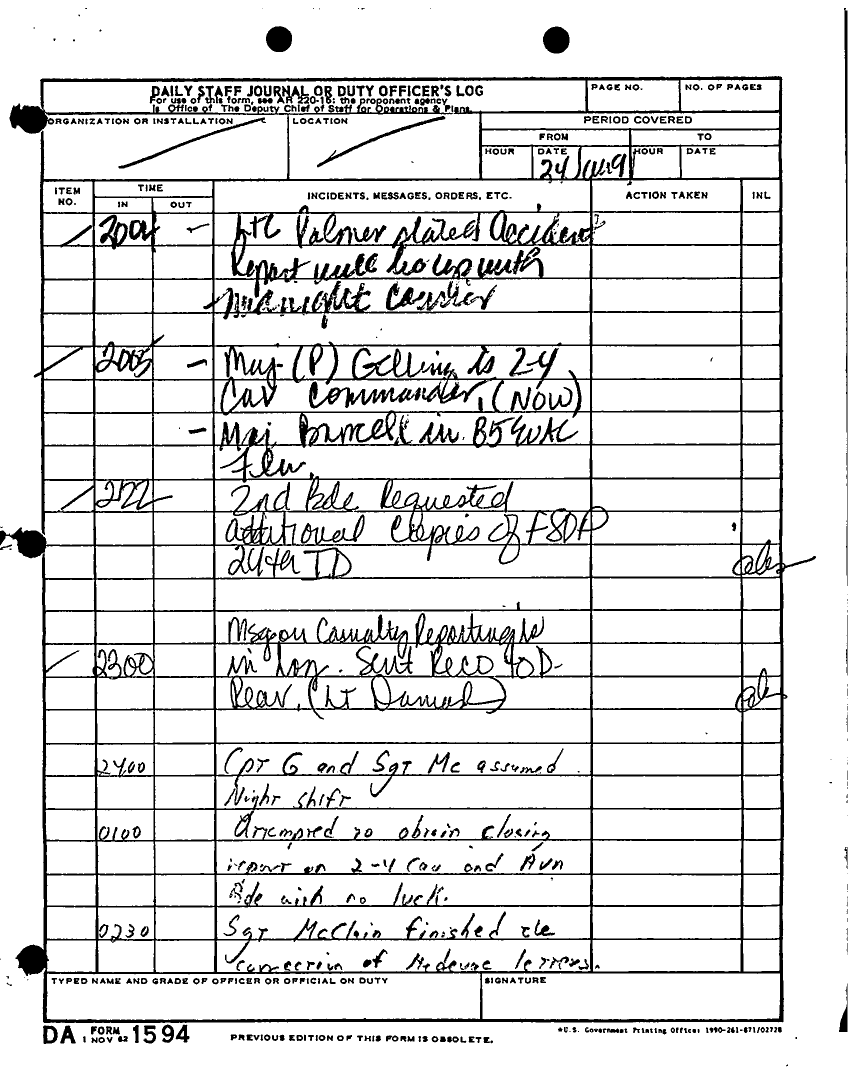 DAILY STAFF JOURNAL OR DUTY OFFICER'S LOG
For use of this form, see AR 220-15; the proponent agency
is Office of The Deputy Chief of Staff for Operations & Plans.
PAGE NO.
NO. OF PAGES
ORGANIZATION OR INSTALLATION
LOCATION
PERIOD COVERED
FROM
TO
HOUR
DATE
HOUR
DATE
24 Jan 91
ITEM NO.
TIME
IN
OUT
INCIDENTS, MESSAGES, ORDERS, ETC.
ACTION TAKEN
INL
2004 - LTC Palmer stated Accident
Report will be up with
midnight Courier
2005 - Maj (P) Gelling is 2-4
Cav Commander, (NOW)
- Maj in
2122 2nd Bde Requested
additional Copies of
24th ID
Msg on Casualty Reporting is
2300 in Log. Sent Reco to D-
Rear. (Lt
2400 Cpt G and Sgt Mc assumed
Night shift
0100 Attempted to obtain closing
report on 2-4 Cav and Avn
Bde with no luck.
0230 Sgt McClain finished the
correction of Medevac letters.
TYPED NAME AND GRADE OF OFFICER OR OFFICIAL ON DUTY
SIGNATURE
DA FORM 1594
1 NOV 62
PREVIOUS EDITION OF THIS FORM IS OBSOLETE.
*U.S. Government Printing Office: 1990-261-871/02728